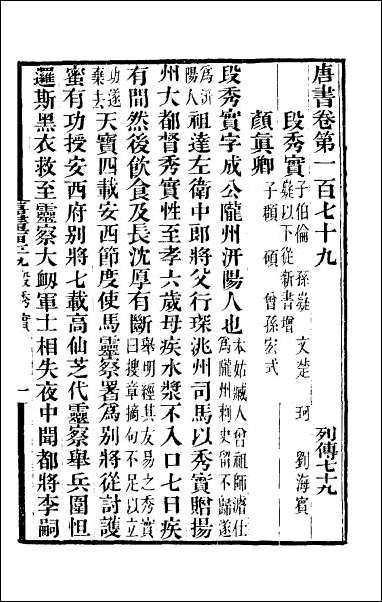 唐書卷第一百七十九
列傳七十九
段秀實 子伯倫 孫嶷 文楚 珂 劉海賓
嶷以下從新書增
顏真卿 子頵 碩 曾孫宏式
段秀實字成公隴州汧陽人也 本姑臧人曾祖師濬仕爲隴州刺史留不歸遂
爲汧陽人 祖達左衛中郎將父行琛洮州司馬以秀實贈揚
州大都督秀實性至孝六歲母疾水漿不入口七日疾
有間然後飲食及長沈厚有斷 舉明經其友易之秀實曰搜章擿句不足以立
功遂棄去 天寶四載安西節度使馬靈察署爲別將從討護
蜜有功授安西府別將七載高仙芝代靈察舉兵圍怛
邏斯黑衣救至靈察大衂軍士相失夜中聞都將李嗣
段秀實 一